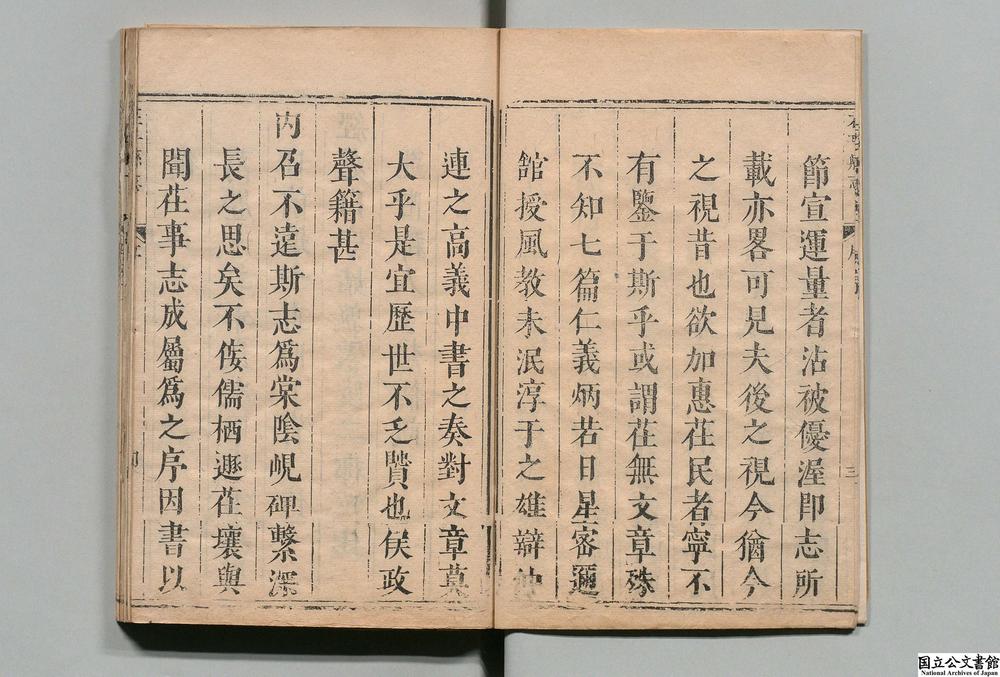 節宣運量者沾被優渥即志所
載亦畧可見夫後之視今猶今
之視昔也欲加惠茌民者寧不
有鑒于斯乎或謂茌無文章殊
不知七篇仁義炳若日星宻邇
舘授風教未泯淳于之雄辯仲
連之高義中書之奏對文章莫
大乎是宜歷世不乏賢也侯政
聲籍甚
内召不遠斯志爲棠陰峴碑繫深
長之思矣不侫儒栖遯茌壤與
聞茌事志成屬爲之序因書以
三
国立公文書館
National Archives of Japan